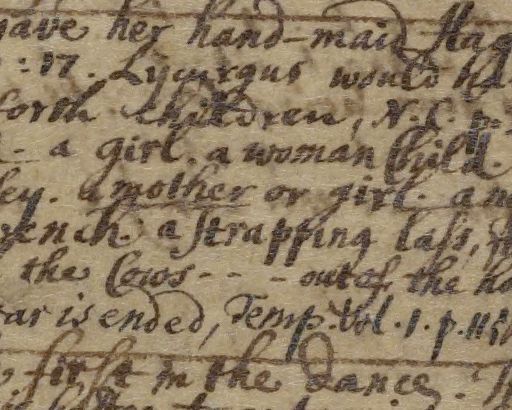 gave her hand-maid Hag
: 17. Lycurgus would ha
forth children, N.C. p.
- a girl. a woman Child.
ley. a mother or girl. a m
wench. a strapping lass,
the Cows - - - out of the ho
ar is ended, Temp. Vol. 1. p. 115
first in the dance.